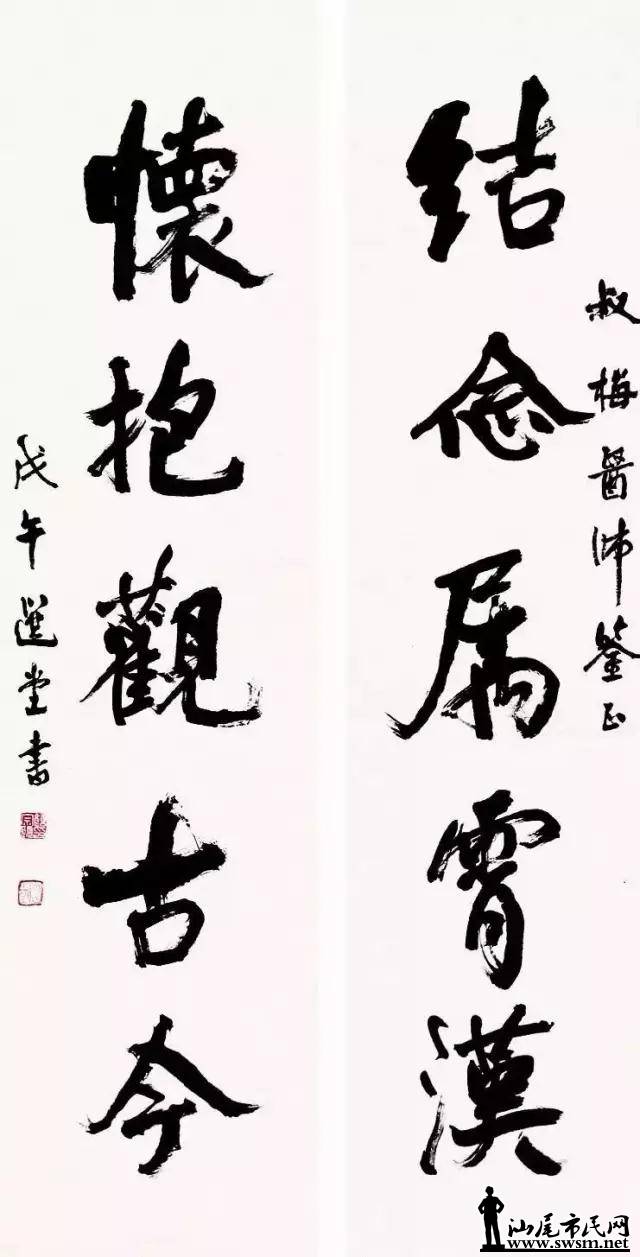 叔梅醫師鑒正
結念属霄漢
懷抱觀古今
戊午選堂書
汕尾市民网
www.swsm.net